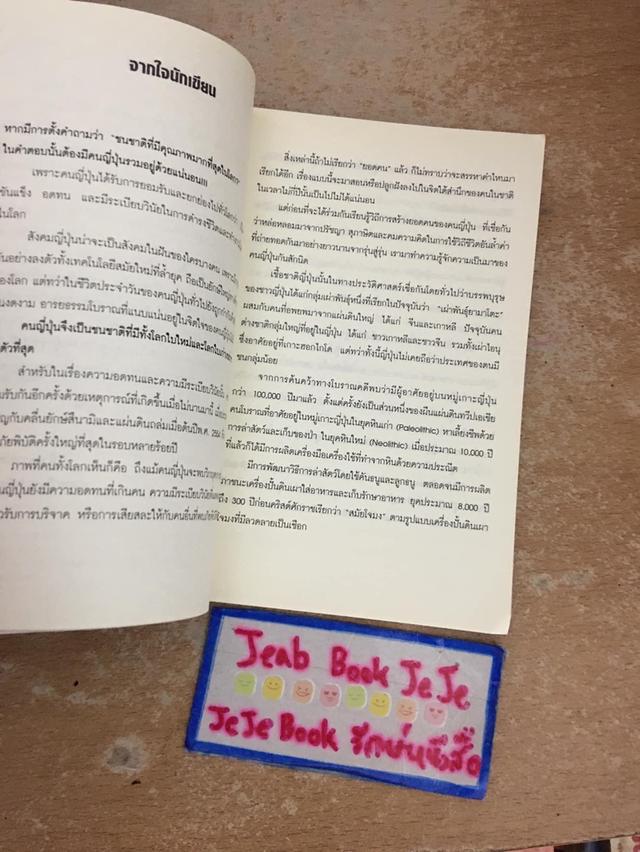 จากใจนักเขียน
หากมีการตั้งคำถามว่า "ชนชาติที่มีคุณภาพมากที่สุดในโลก
ในคำตอบนั้นต้องมีคนญี่ปุ่นรวมอยู่ด้วยแน่นอน!!!
เพราะคนญี่ปุ่นได้รับการยอมรับและยกย่องไปทั่วโลกว่า
ขันแข็ง อดทน และมีระเบียบวินัยในการดำรงชีวิตและทำงาน
ในโลก
สังคมญี่ปุ่นน่าจะเป็นสังคมในฝันของใครบางคน
อย่างลงตัวทั้งเทคโนโลยีสมัยใหม่ที่ล้ำยุค
องโลก แต่ทว่าในชีวิตประจำวันของคนญี่ปุ่นทั่วไปยังถูก
งดงาม อารยธรรมโบราณที่แนบแน่นอยู่ในจิตใจของคนญี่ปุ่น
คนญี่ปุ่นจึงเป็นชนชาติที่มีทั้งโลกใบใหม่และโลกใบเก่า
ตัวที่สุด
สำหรับในเรื่องความอดทนและความมีระเบียบวินัยนั้น
รับกันอีกครั้งด้วยเหตุการณ์ที่เกิดขึ้นเมื่อไม่นานมานี้
กับคลื่นยักษ์สึนามิและแผ่นดินถล่มเมื่อต้นปีพ.ศ.
ภัยพิบัติครั้งใหญ่ที่สุดในรอบหลายร้อยปี
ภาพที่คนทั้งโลกเห็นก็คือ ถึงแม้คนญี่ปุ่นจะพบ
ญี่ปุ่นยังมีความอดทนที่เกินคน ความมีระเบียบวินัย
รับการบริจาค หรือการเสียสละให้กับคนอื่นที่
สิ่งเหล่านี้ถ้าไม่เรียกว่า "ยอดคน" แล้ว ก็ไม่ทราบว่าจะสรรหาคำไหนมา
เรียกได้อีก เรื่องแบบนี้จะมาสอนหรือปลูกฝังลงไปในจิตใต้สำนึกของคนในชาติ
ในเวลาไม่กี่ปีนั้นเป็นไปไม่ได้แน่นอน
แต่ก่อนที่จะได้ร่วมกันเรียนรู้วิถีการสร้างยอดคนของคนญี่ปุ่น ที่เชื่อกัน
ว่าหล่อหลอมมาจากปรัชญา สุภาษิตและคมความคิดในการใช้วิถีชีวิตอันล้ำค่า
ที่ถ่ายทอดกันมาอย่างยาวนานจากรุ่นสู่รุ่น เรามาทำความรู้จักความเป็นมาของ
คนญี่ปุ่นกันสักนิด
เชื้อชาติญี่ปุ่นนั้นในทางประวัติศาสตร์เชื่อกันโดยทั่วไปว่าบรรพบุรุษ
ของชาวญี่ปุ่นได้แก่กลุ่มเผ่าพันธุ์หนึ่งที่เรียกในปัจจุบันว่า "เผ่าพันธุ์ยามาโตะ"
ผสมกับคนที่อพยพมาจากแผ่นดินใหญ่ ได้แก่ จีนและเกาหลี ปัจจุบันคน
ต่างชาติกลุ่มใหญ่ที่อยู่ในญี่ปุ่น ได้แก่ ชาวเกาหลีและชาวจีน รวมทั้งเผ่าไอนุ
ซึ่งอาศัยอยู่ที่เกาะฮอกไกโด แต่ทว่าทั้งนี้ญี่ปุ่นไม่เคยถือว่าประเทศของตนมี
ชนกลุ่มน้อย
จากการค้นคว้าทางโบราณคดีพบว่ามีผู้อาศัยอยู่บนหมู่เกาะญี่ปุ่น
กว่า 100,000 ปีมาแล้ว ตั้งแต่ครั้งยังเป็นส่วนหนึ่งของผืนแผ่นดินทวีปเอเชีย
คนโบราณที่อาศัยอยู่ในหมู่เกาะญี่ปุ่นในยุคหินเก่า (Paleolithic) หาเลี้ยงชีพด้วย
การล่าสัตว์และเก็บของป่า ในยุคหินใหม่ (Neolithic) เมื่อประมาณ 10,000 ปี
ที่แล้วก็ได้มีการผลิตเครื่องมือเครื่องใช้ที่ทำจากหินด้วยความประณีต
มีการพัฒนาวิธีการล่าสัตว์โดยใช้คันธนูและลูกธนู ตลอดจนมีการผลิต
ภาชนะเครื่องปั้นดินเผาใส่อาหารและเก็บรักษาอาหาร ยุคประมาณ 8,000 ปี
ถึง 300 ปีก่อนคริสต์ศักราชเรียกว่า "สมัยโจมง" ตามรูปแบบเครื่องปั้นดินเผา
โจมงที่มีลวดลายเป็นเชือก
Jeab Book JeJe
JeJe Book รักษ์หนังสือ